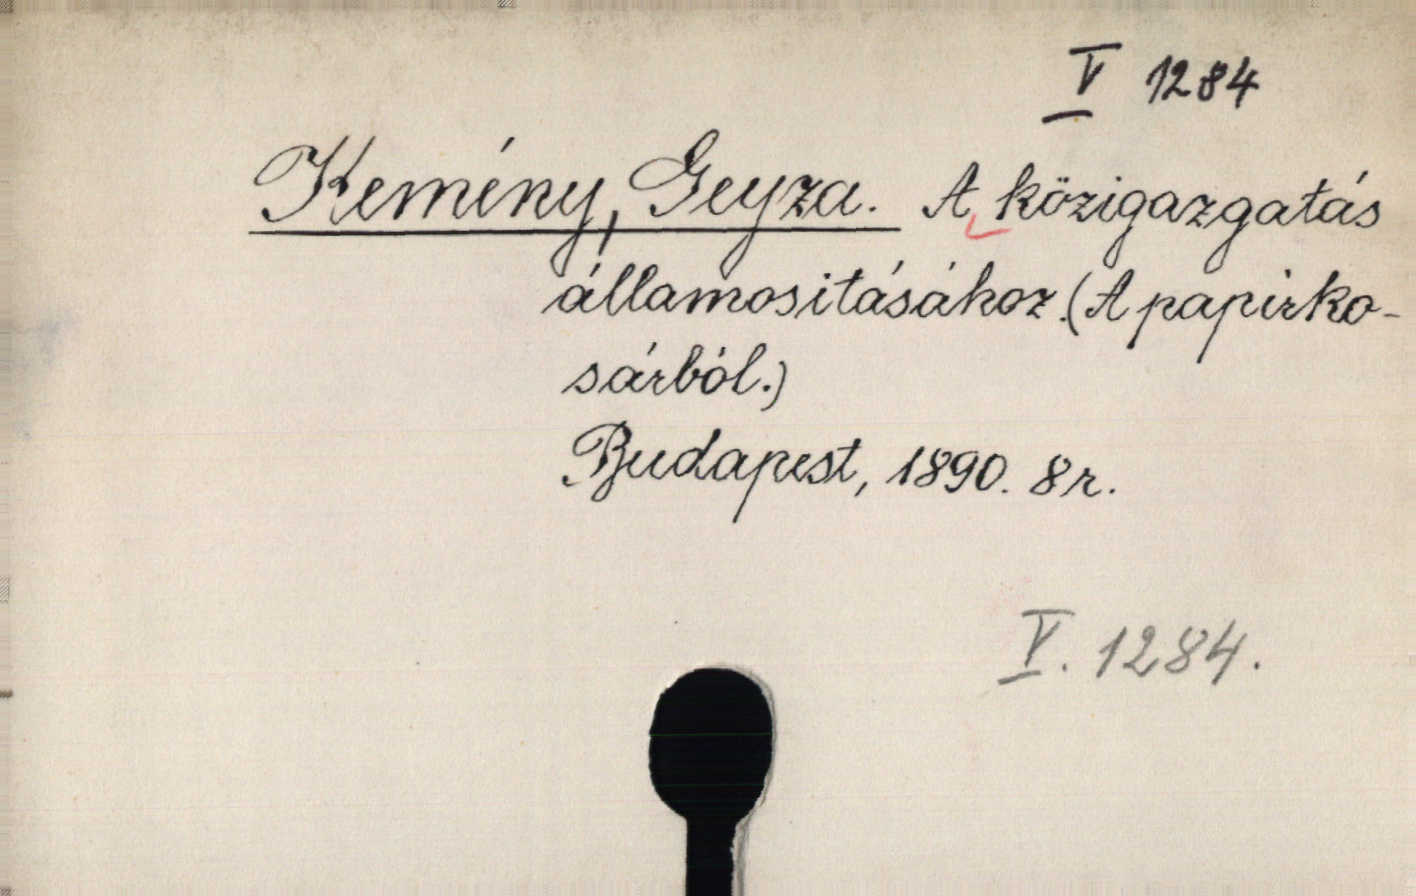 V 1284
Kemény, Geyza. A közigazgatás
államositásához. (A papirko-
sárból.)
Budapest, 1890. 8r.
V. 1284.